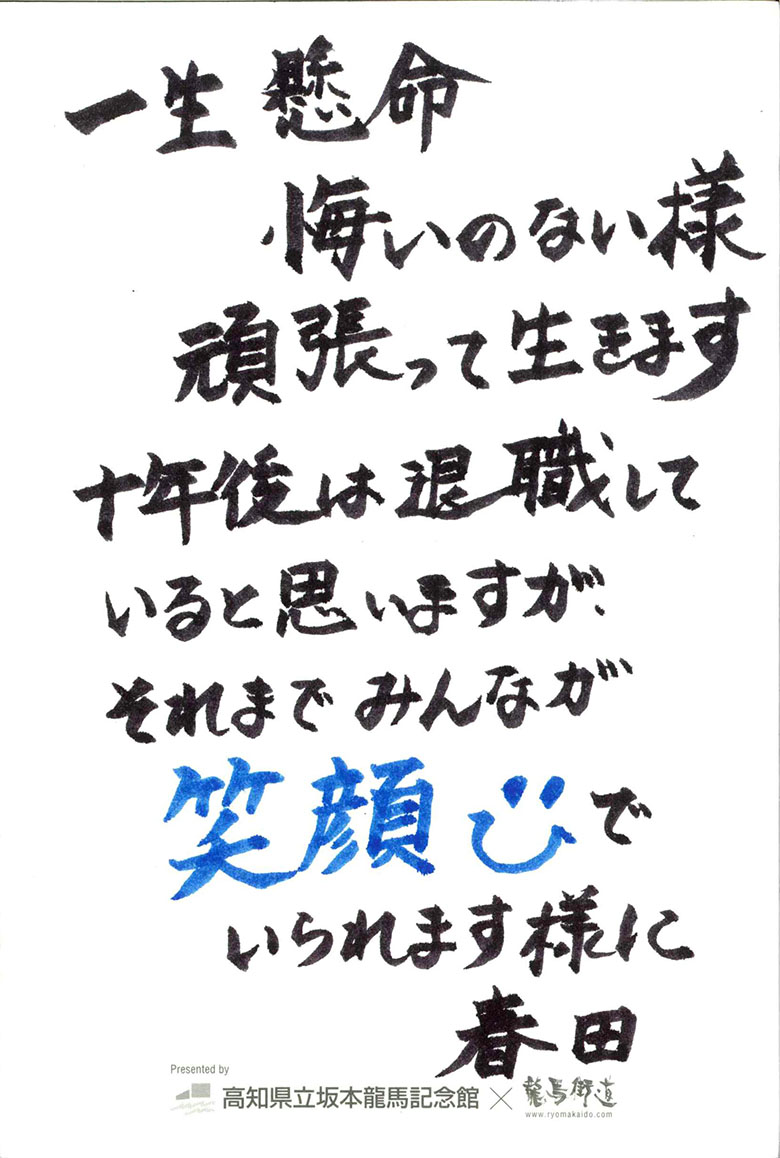 一生懸命
悔いのない様
頑張って生きます
十年後は退職して
いると思いますが、
それまでみんなが
笑顔で
いられます様に
春田
Presented by
高知県立坂本龍馬記念館 × 龍馬街道
www.ryomakaido.com